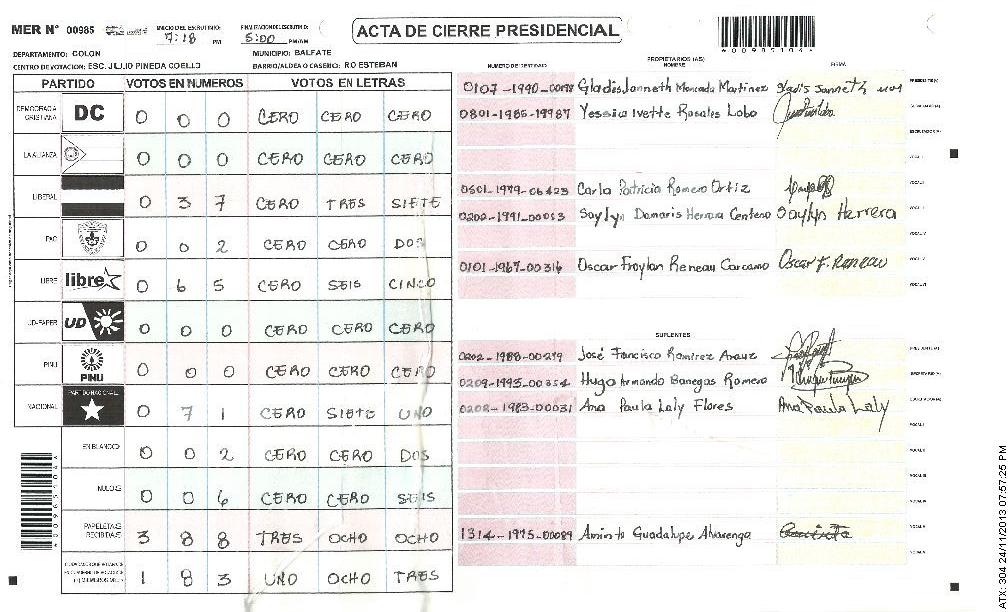 MER N° 00985 INICIO DEL ESCRUTINIO: 7:18 PM FINALIZACION DEL ESCRUTINIO: 5:00 PM/AM
ACTA DE CIERRE PRESIDENCIAL
DEPARTAMENTO: COLON MUNICIPIO: BALFATE
CENTRO DE VOTACION: ESC. JULIO PINEDA COELLO BARRIO/ALDEA O CASERIO: RO ESTEBAN
PARTIDO VOTOS EN NUMEROS VOTOS EN LETRAS
DEMOCRACIA CRISTIANA DC 0 0 0 CERO CERO CERO
LA ALIANZA 0 0 0 CERO CERO CERO
LIBERAL 0 3 7 CERO TRES SIETE
PAC 0 0 2 CERO CERO DOS
LIBRE libre 0 6 5 CERO SEIS CINCO
UD-FAPER UD 0 0 0 CERO CERO CERO
PINU PINU 0 0 0 CERO CERO CERO
NACIONAL PARTIDO NACIONAL 0 7 1 CERO SIETE UNO
EN BLANCO 0 0 2 CERO CERO DOS
NULOS 0 0 6 CERO CERO SEIS
PAPELETAS RECIBIDAS 3 8 8 TRES OCHO OCHO
1 8 3 UNO OCHO TRES
NUMERO DE IDENTIDAD PROPIETARIOS (AS) NOMBRE FIRMA
0107-1990-00198 Gladis Janneth Moncada Martinez Gladis Janneth
0801-1985-19987 Yessica Ivette Rosales Lobo
0501-1979-06423 Carla Patricia Romero Ortiz
0202-1991-00053 Saylyn Damaris Herrera Centeno Saylyn Herrera
0101-1967-00316 Oscar Froylan Reneau Carcamo Oscar F. Reneau
SUPLENTES
0202-1988-00219 José Francisco Ramirez Arauz
0209-1993-00354 Hugo Armando Banegas Romero
0208-1983-00031 Ana Paula Laly Flores Ana Paula Laly
1314-1975-00089 Aminta Guadalupe Alvarenga
ATX: 304 24/11/2013 07:57:25 PM